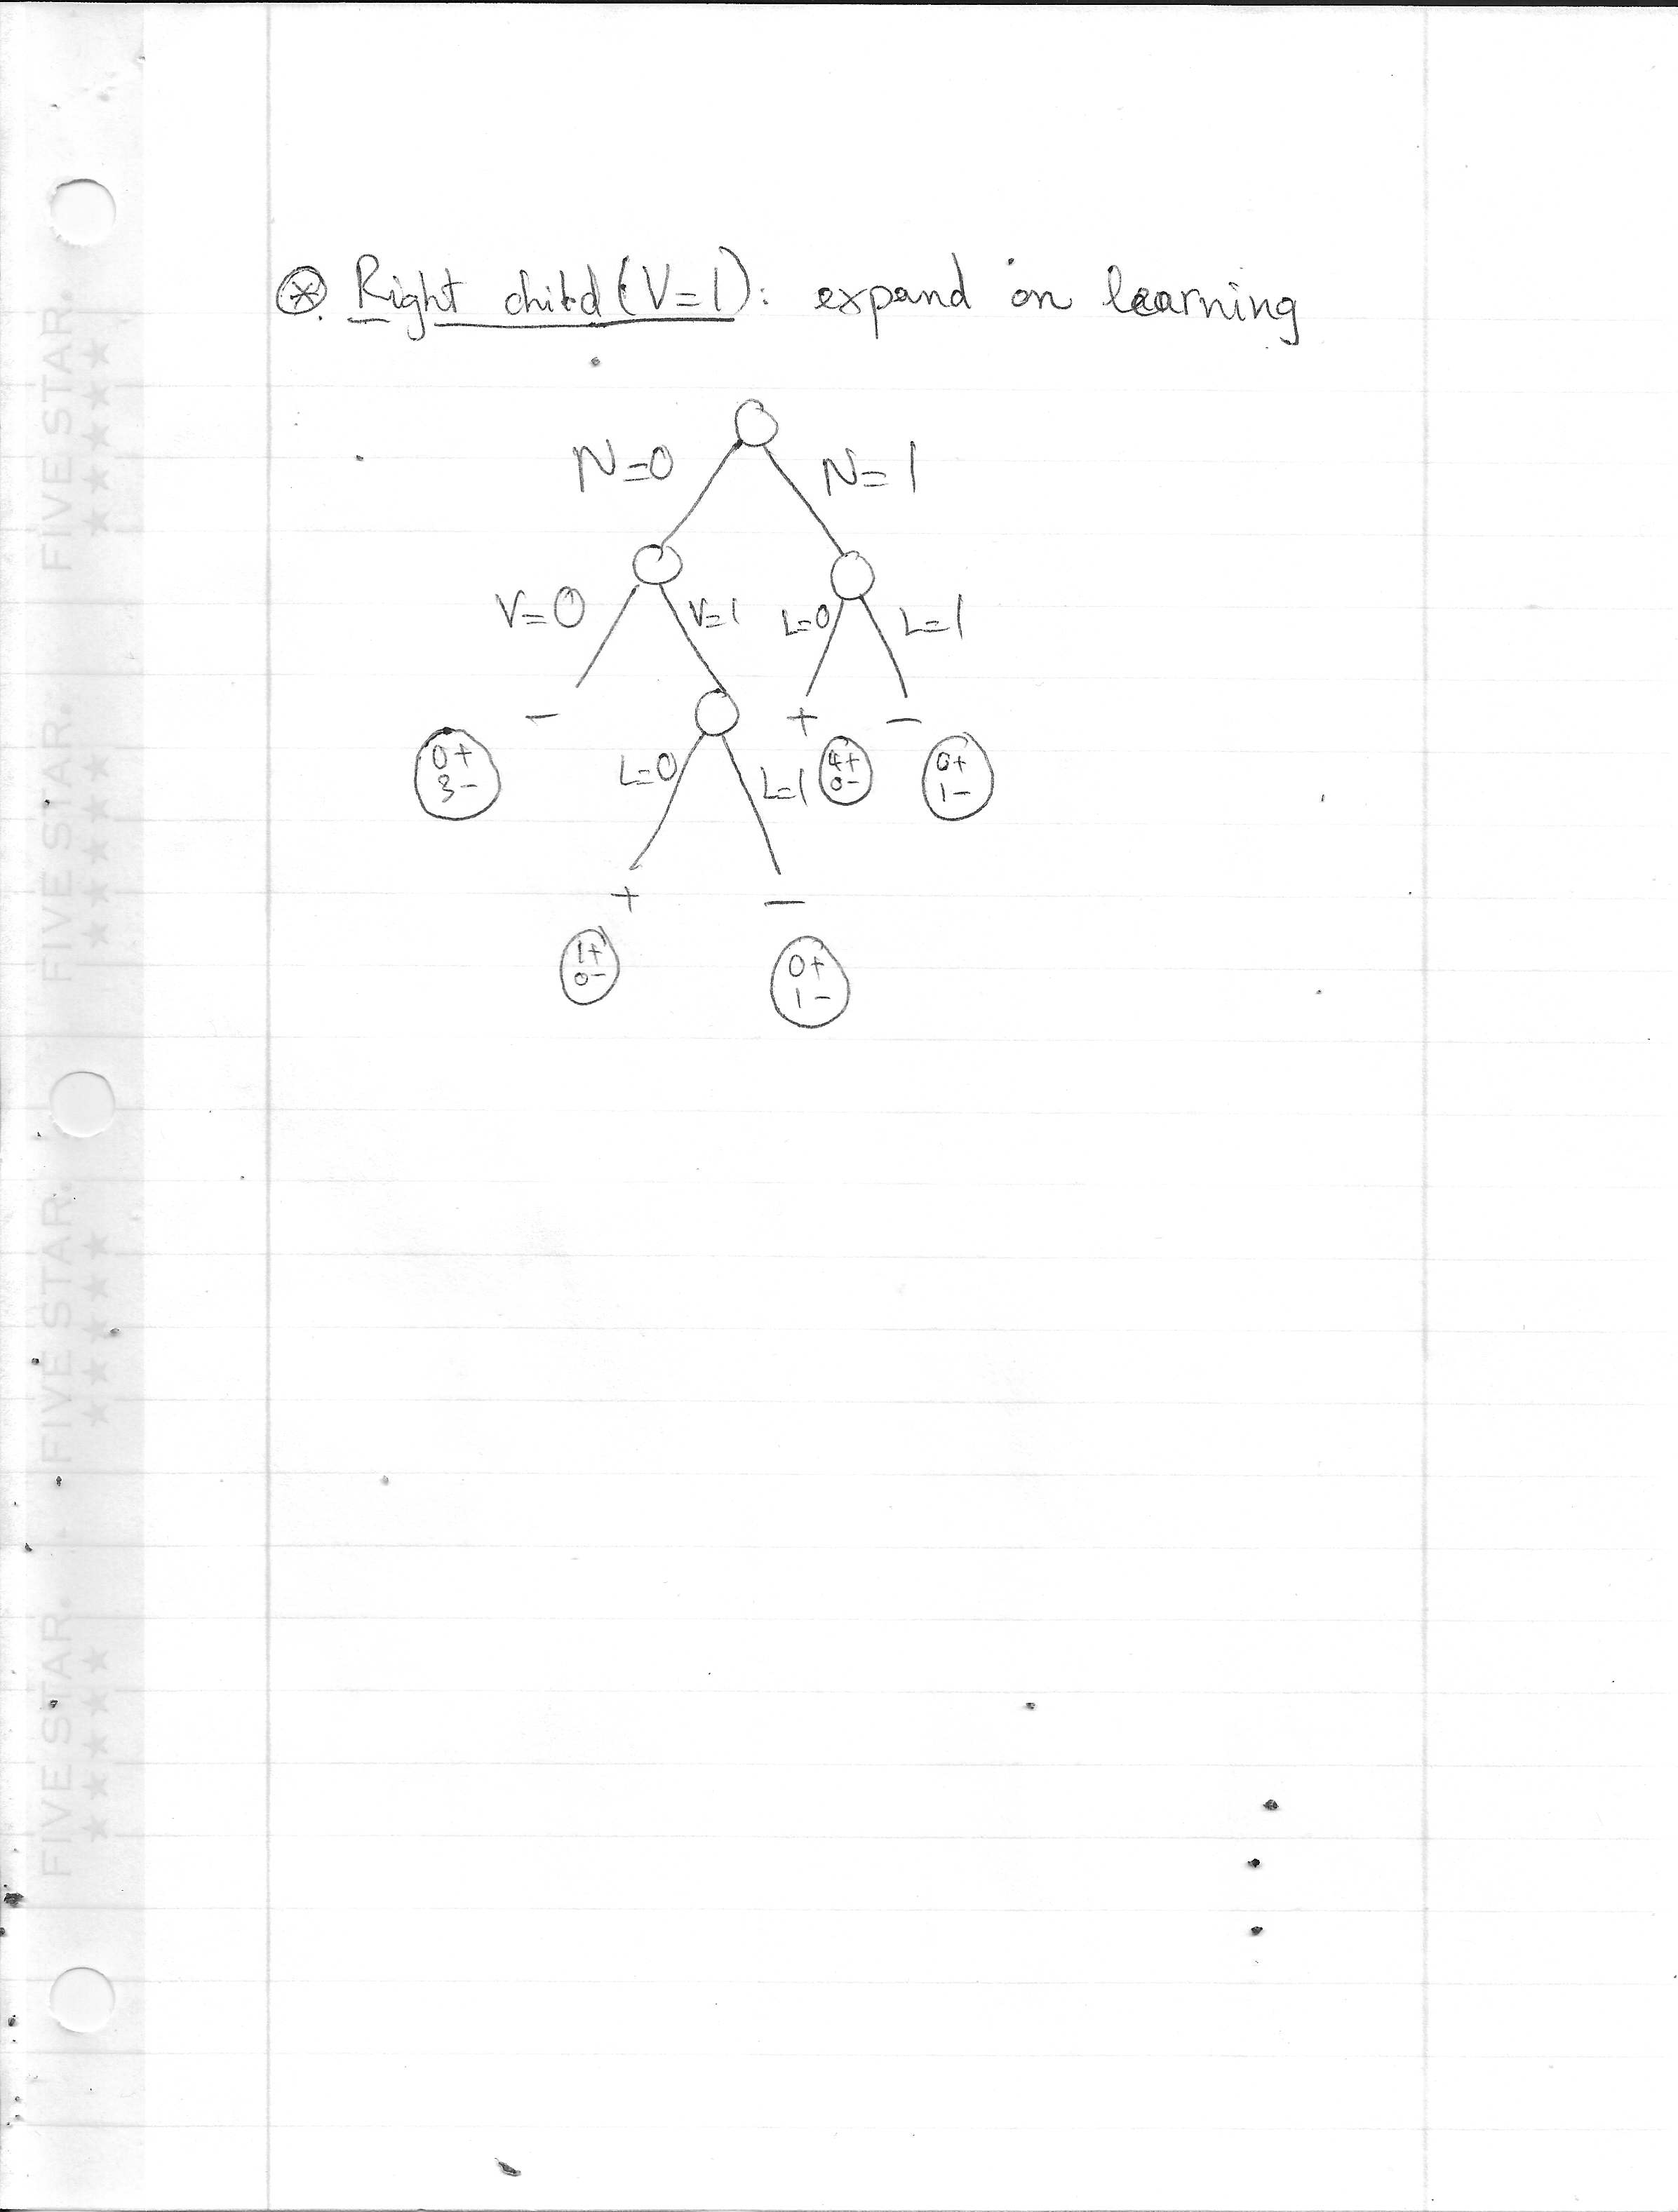 ⊛. Right child (V=1): expand on learning
N=0 N=1
V=0 V=1 L=0 L=1
- + -
0+ 4+ 0+
3- 0- 1-
L=0 L=1
+ -
1+ 0+
0- 1-
FIVE STAR.
★★★★★
FIVE STAR.
★★★★★
FIVE STAR.
★★★★★
FIVE STAR.
★★★★★